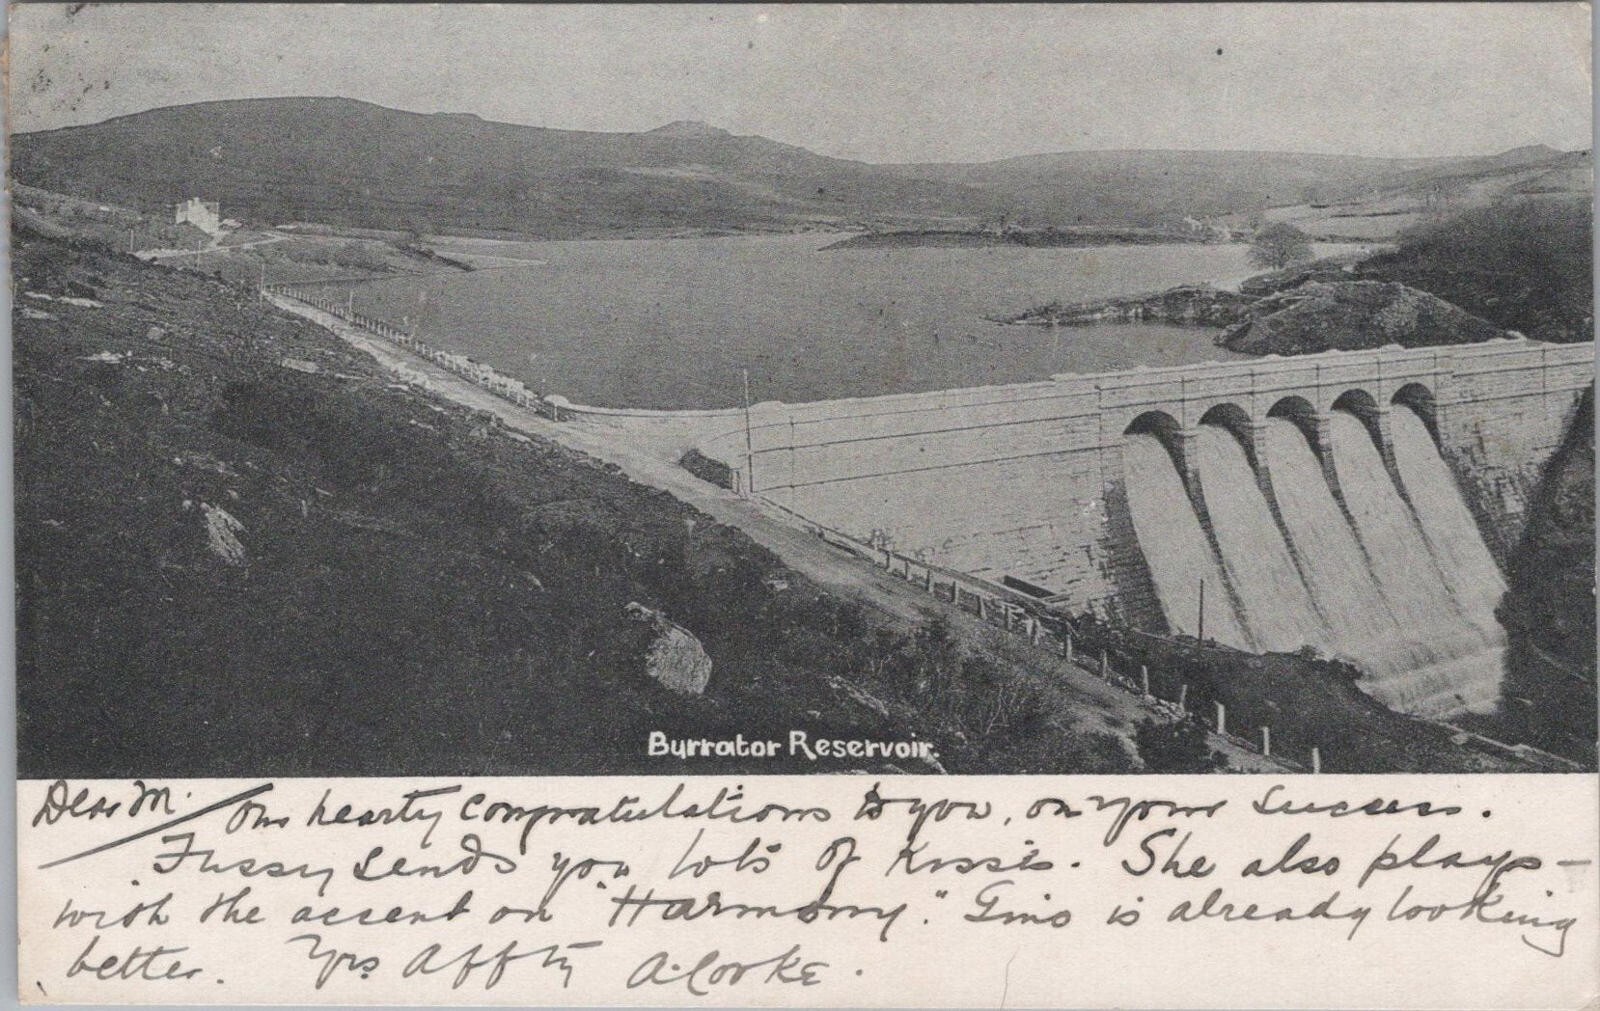 Burrator Reservoir.
Dear M. our hearty congratulations to you, on your success.
Fussy sends you lots of kisses. She also plays –
with the accent on "Harmony." Gino is already looking
better. Yrs Affty A. Cooke.